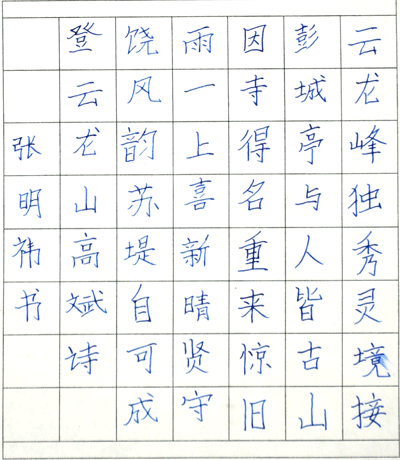 云龙峰独秀灵境接
彭城亭与人皆古山
因寺得名重来惊旧
雨一上喜新晴贤守
饶风韵苏堤自可成
登云龙山高斌诗
张明祎书